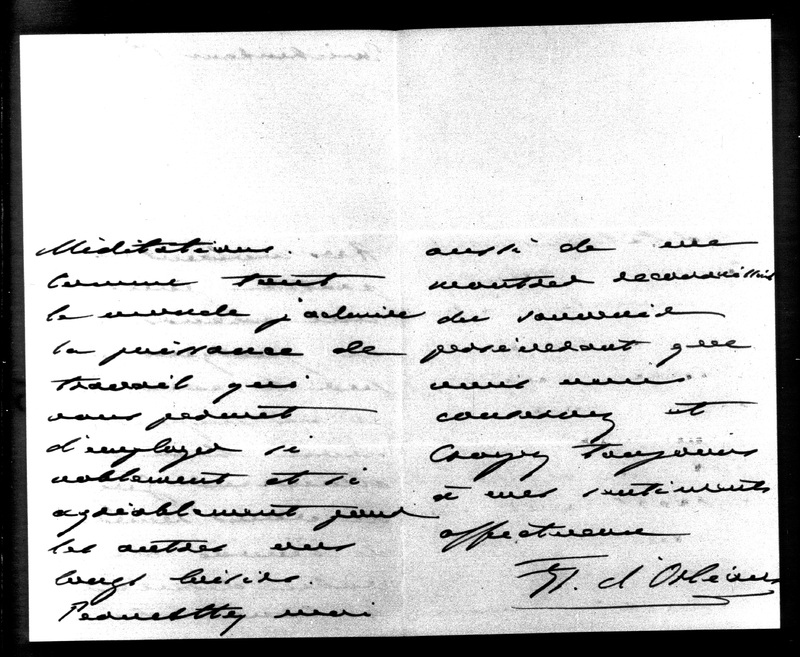 Méditations.
Comme tout
le monde j'admire
la puissance de
travail qui
vous permet
d'employer si
noblement et si
agréablement pour
les autres vos
longs loisirs.
Permettez moi
aussi de me
montrer reconnaissant
du souvenir
persévérant que
vous nous
conservez et
Croyez toujours
à mes sentiments
affectueux
d'Orléans